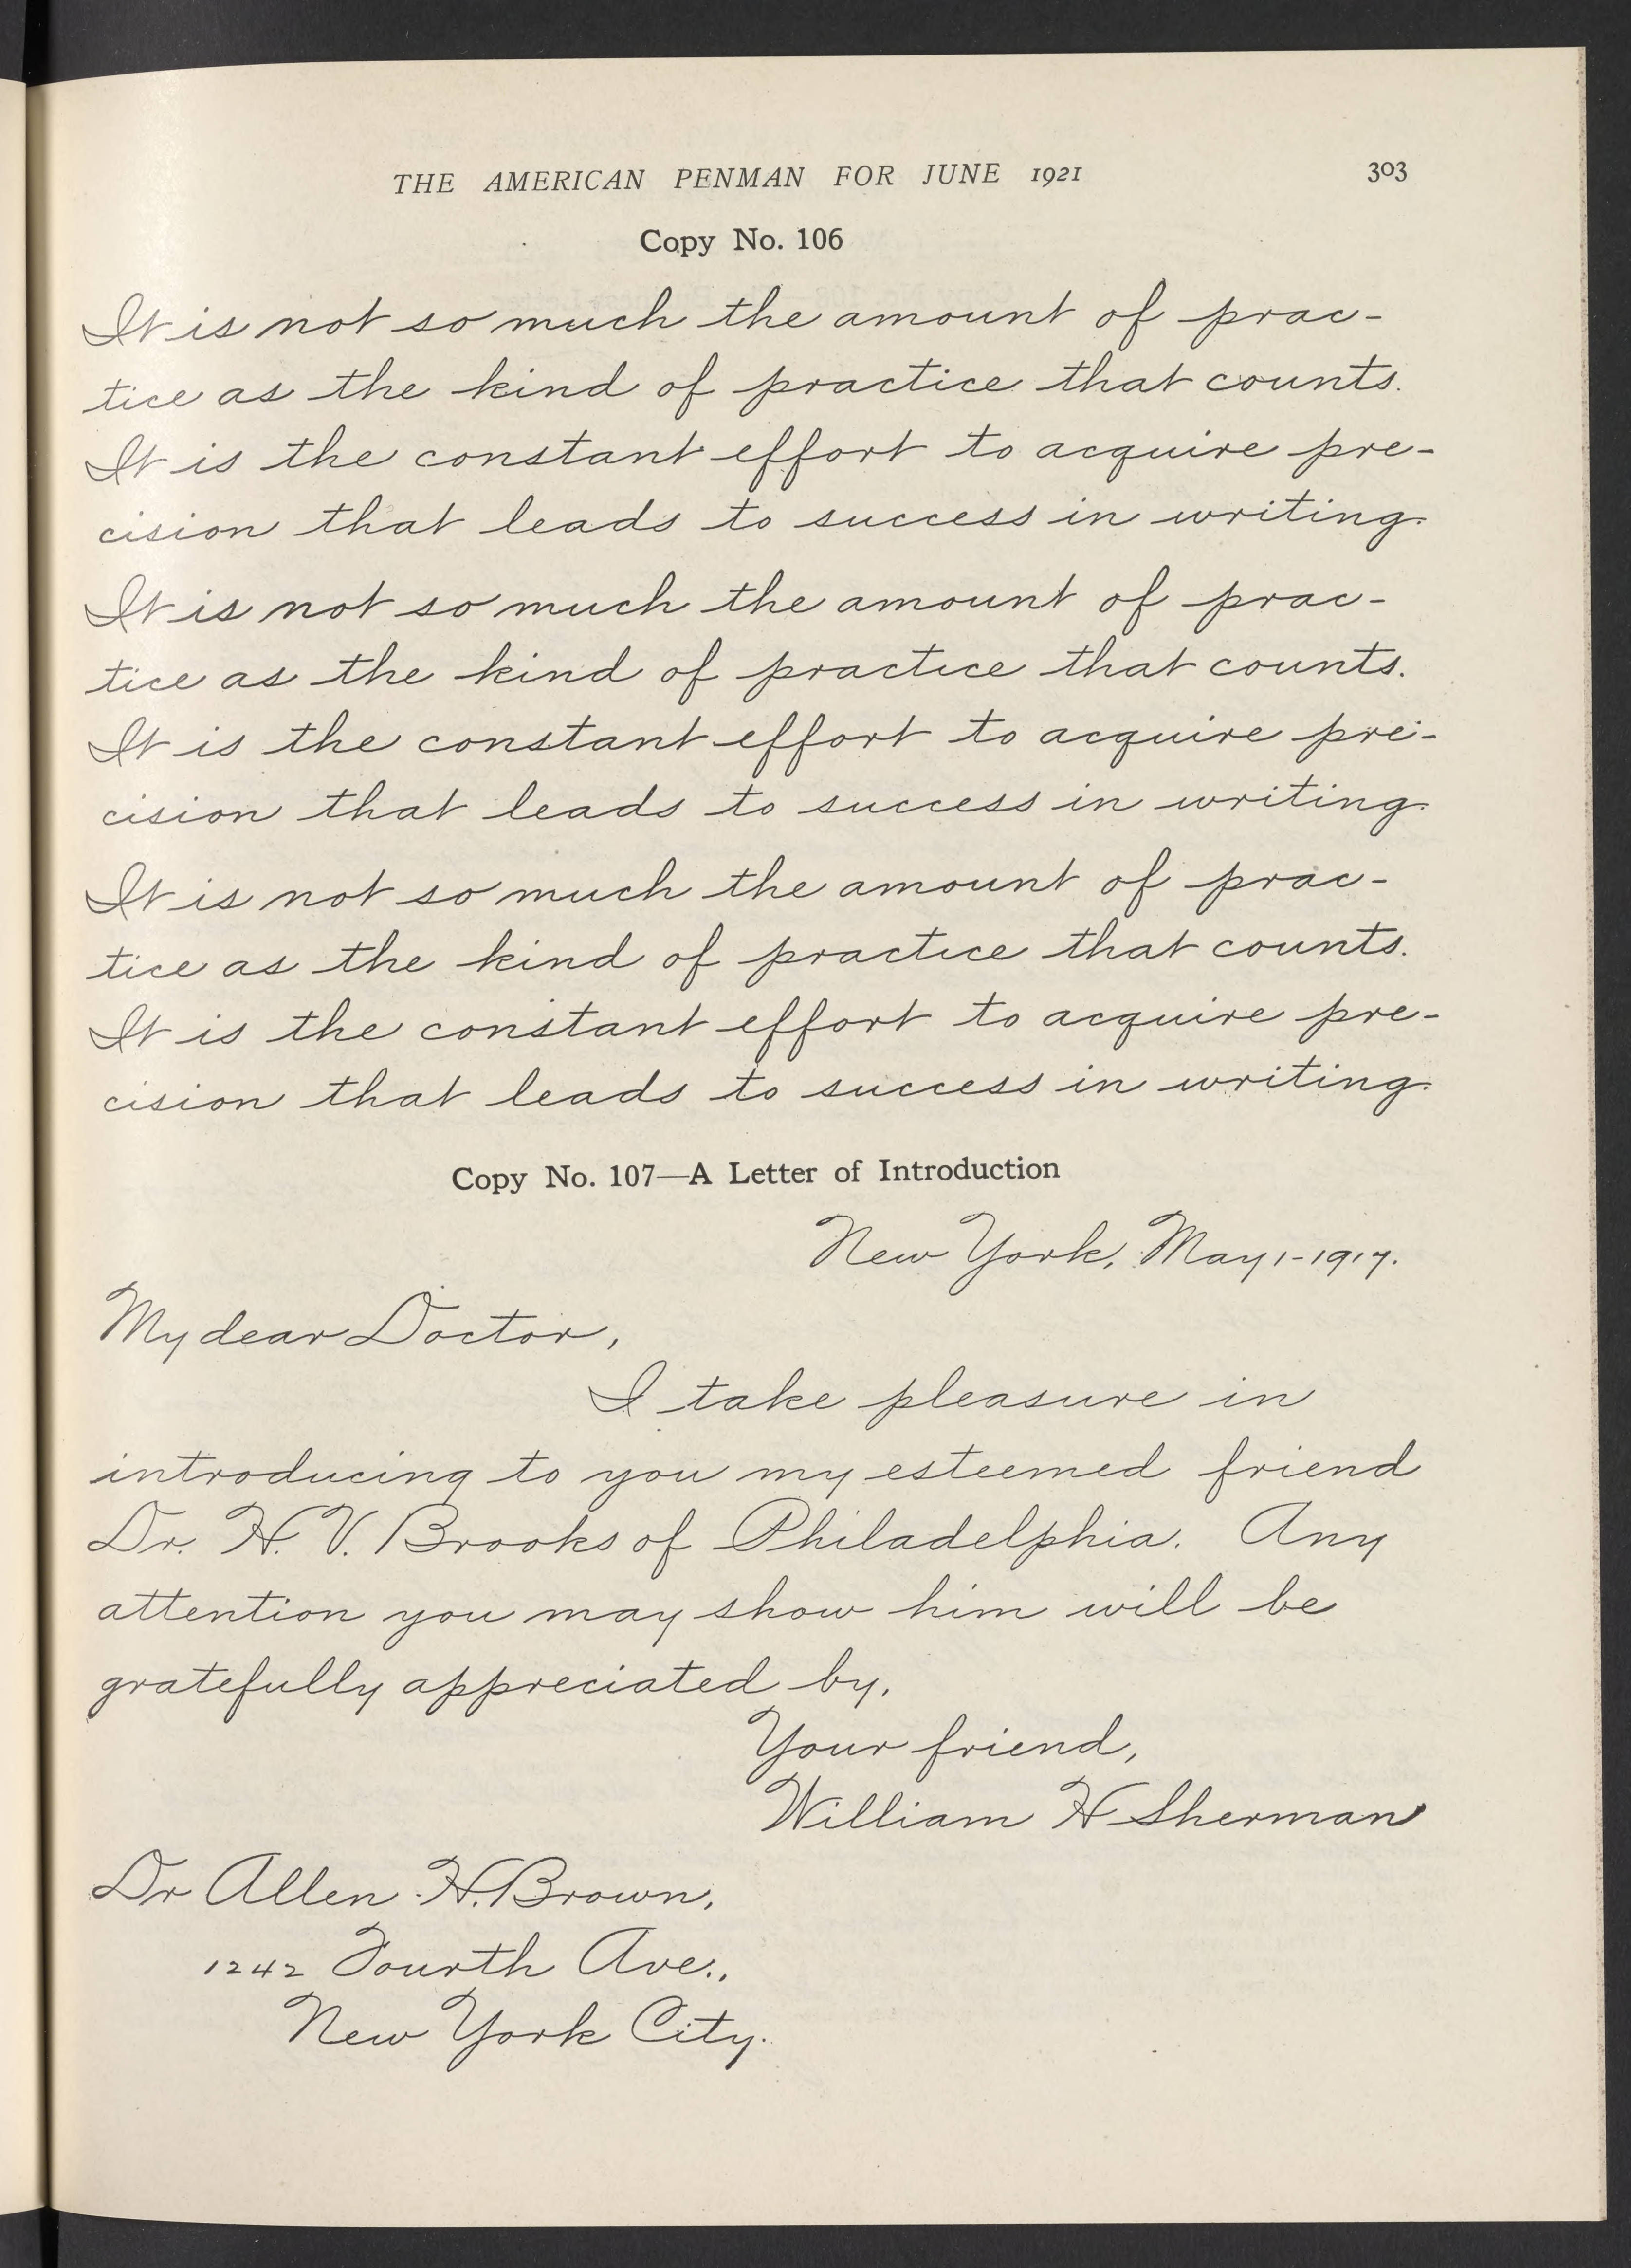 THE AMERICAN PENMAN FOR JUNE 1921 303
Copy No. 106
It is not so much the amount of prac-
tice as the kind of practice that counts.
It is the constant effort to acquire pre-
cision that leads to success in writing.
It is not so much the amount of prac-
tice as the kind of practice that counts.
It is the constant effort to acquire pre-
cision that leads to success in writing.
It is not so much the amount of prac-
tice as the kind of practice that counts.
It is the constant effort to acquire pre-
cision that leads to success in writing.
Copy No. 107—A Letter of Introduction
New York, May 1-1917.
My dear Doctor,
I take pleasure in
introducing to you my esteemed friend
Dr. H. V. Brooks of Philadelphia. Any
attention you may show him will be
gratefully appreciated by,
Your friend,
William H Sherman
Dr Allen H. Brown,
1242 Fourth Ave.,
New York City.